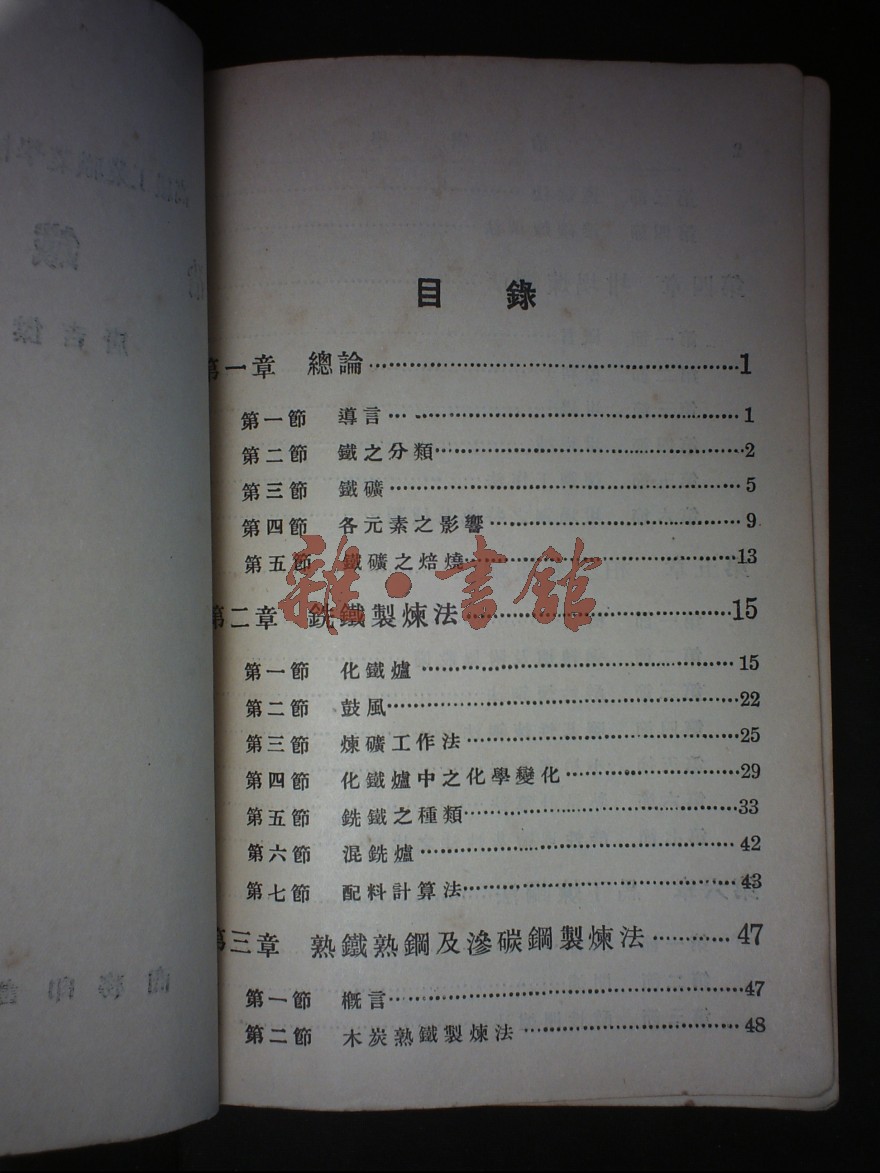 目錄
第一章 總論…………1
第一節 導言…………1
第二節 鐵之分類…………2
第三節 鐵礦…………5
第四節 各元素之影響…………9
第五節 鐵礦之焙燒…………13
雜·書館
第二章 銑鐵製煉法…………15
第一節 化鐵爐…………15
第二節 鼓風…………22
第三節 煉礦工作法…………25
第四節 化鐵爐中之化學變化…………29
第五節 銑鐵之種類…………33
第六節 混銑爐…………42
第七節 配料計算法…………43
第三章 熟鐵熟鋼及滲碳鋼製煉法…………47
第一節 概言…………47
第二節 木炭熟鐵製煉法…………48